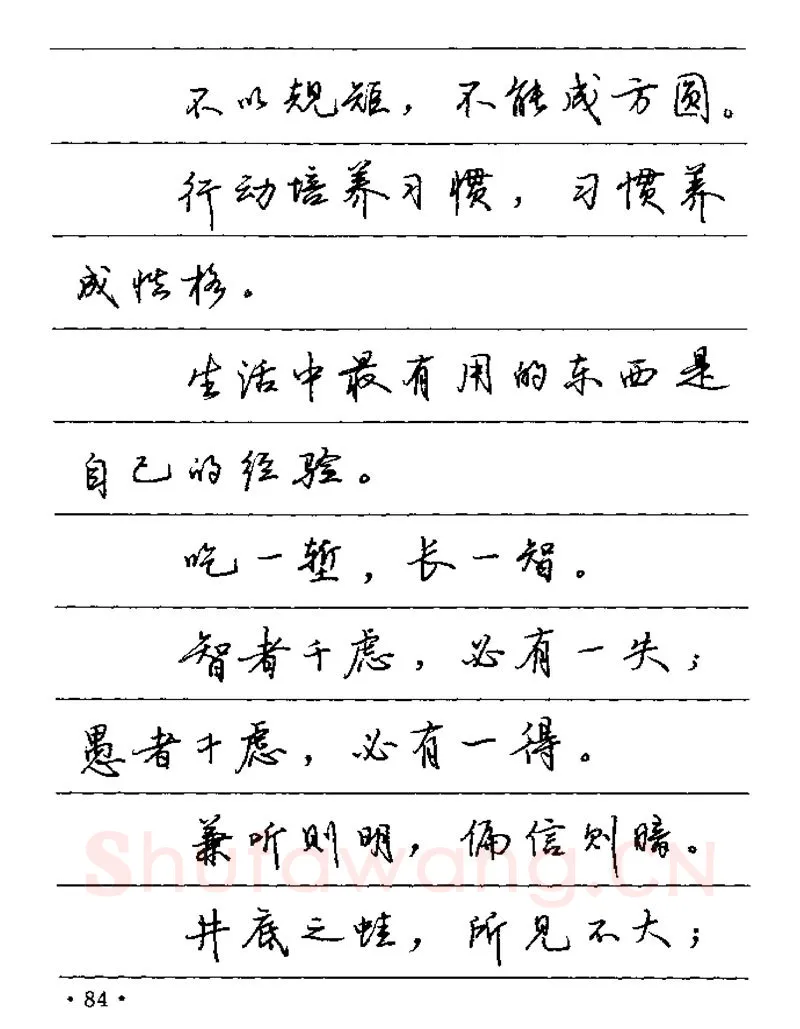 不以规矩，不能成方圆。
行动培养习惯，习惯养
成性格。
生活中最有用的东西是
自己的经验。
吃一堑，长一智。
智者千虑，必有一失；
愚者千虑，必有一得。
兼听则明，偏信则暗。
Shufawang.CN
井底之蛙，所见不大；
·84·